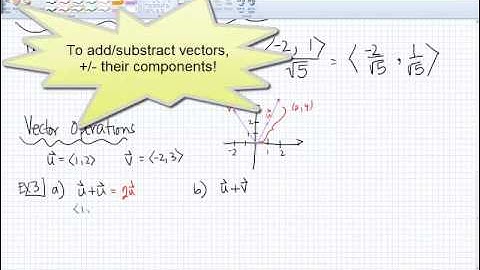 To add/substract vectors,
+/- their components!
<-2, 1>/√5 = <-2/√5, 1/√5>
Vector Operations
u⃗ = <1,2> v⃗ = <-2,3>
2
1
-2 -1 1 2
u⃗
Ex3] a) u⃗+u⃗ = 2u⃗ b) u⃗+v⃗
<1,